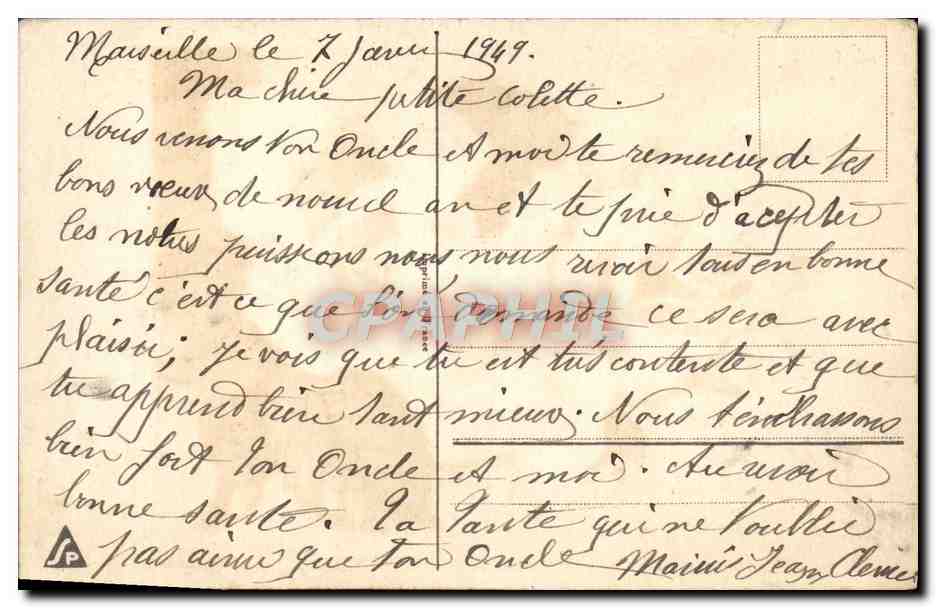 Marseille le 7 Janvier 1949.
Ma chère petite Colette.
Nous venons ton Oncle et moi te remerciez de tes
bons vœux de nouvel an et te prie d'accepter
les notres puissions nous nous revoir tous en bonne
santé c'est ce que l'on demande ce sera avec
plaisir, je vois que tu est très contente et que
tu apprend bien tant mieux. Nous t'embrassons
bien fort ton Oncle et moi. Au revoir
bonne santé. Ta Tante qui ne t'oublie
pas ainsi que ton Oncle Jean
Imprimé en France
CPAPHIL